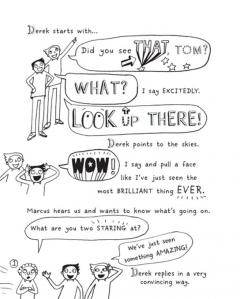 Derek starts with...
Did you see THAT, TOM?
WHAT? I say EXCITEDLY.
LOOK UP THERE!
Derek points to the skies.
WOW! I say and pull a face
like I've just seen the
most BRILLIANT thing EVER.
Marcus hears us and wants to know what's going on.
What are you two STARING at?
We've just seen
something AMAZING!
Derek replies in a very
convincing way.